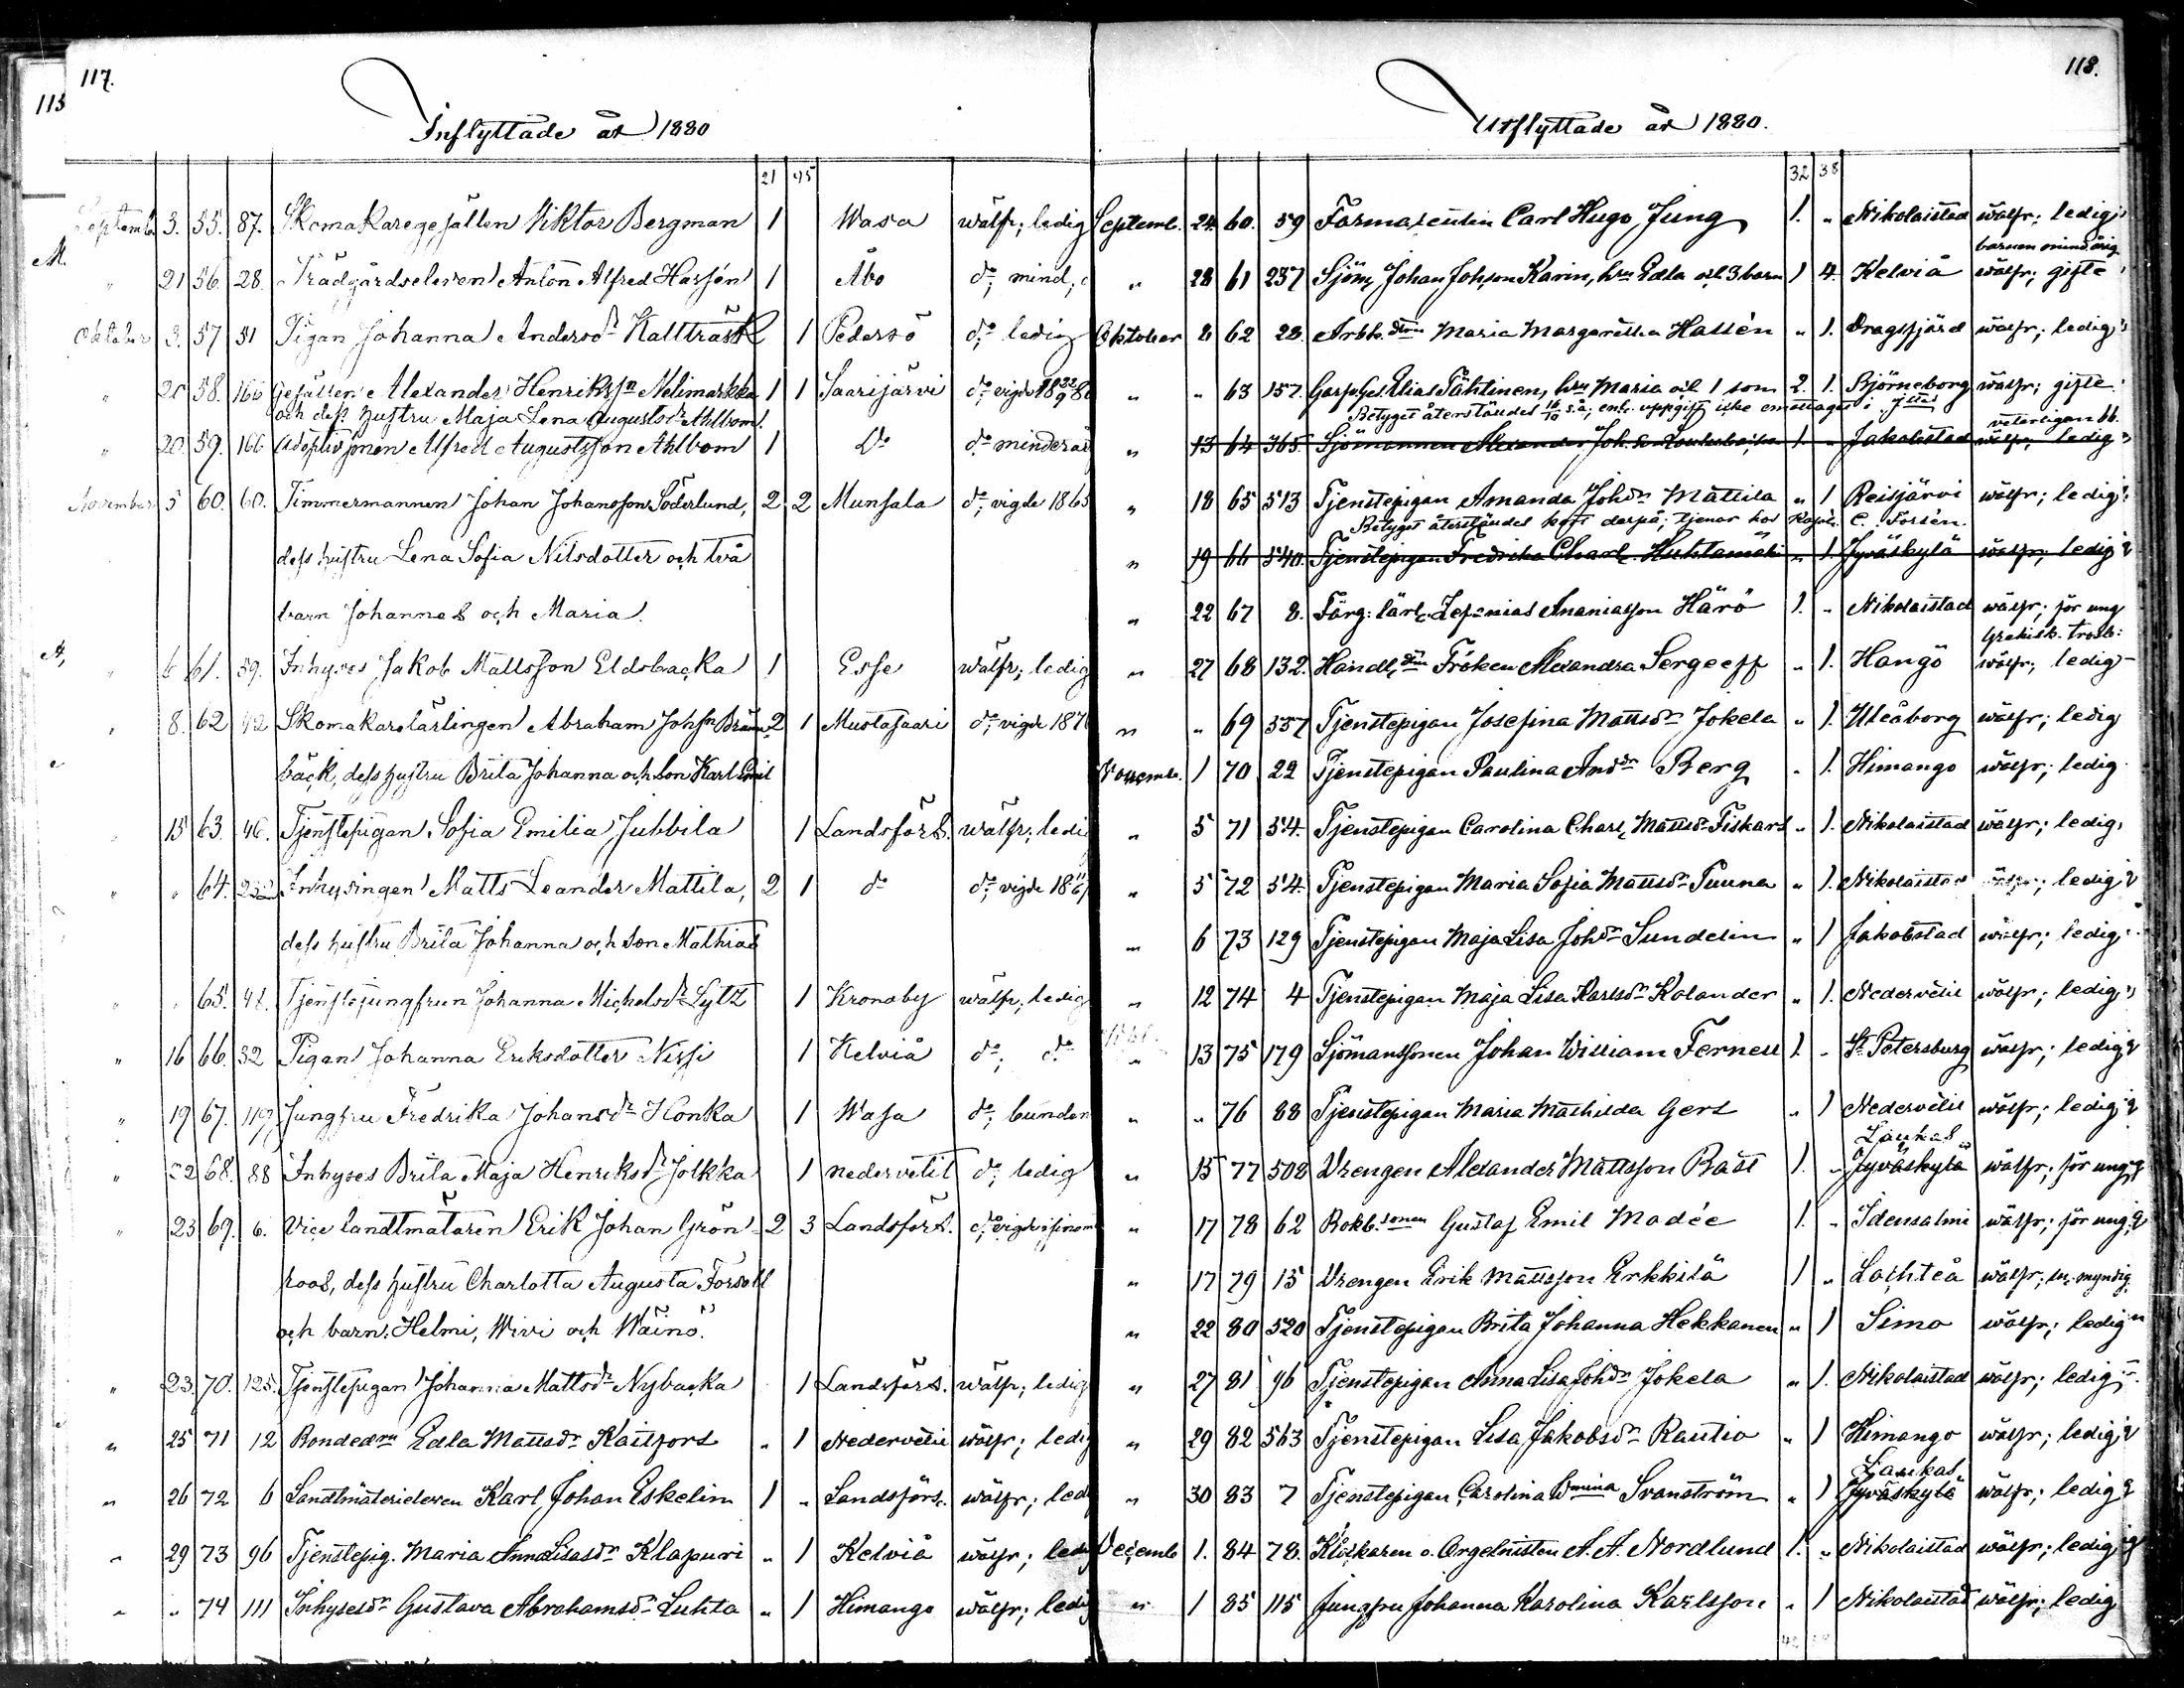 117.
113
Inflyttade år 1880
21 45
September 3. 55. 87. Skomakaregesällen Viktor Bergman 1 Wasa wälfr; ledig
M. " 21 56. 28. Trädgårdseleven Anton Alfred Hassén 1 Åbo do; mind;
Oktober 3. 57 51 Pigan Johanna Andersdr Kallträsk 1 Pedersö do; ledig
" 20 58. 166 Gesällen Alexander Henrikssn Nelimarkka 1 1 Saarijärvi do; vigde 18 22/9 80
och dess hustru Maja Lena Augustsdr Ahlbom.
" 20. 59. 166 Adoptivsonen Alfred Augustsson Ahlbom 1 Do do minderår
November 5 60. 60. Timmermannen Johan Johansson Söderlund, 2 2 Munsala do; vigde 1865
dess hustru Lena Sofia Nilsdotter och två
barn Johannes och Maria.
A, " 6 61. 59. Inhyses Jakob Mattsson Eldsbacka 1 Esse wälfr; ledig
" 8. 62 42 Skomakarelärlingen Abraham Johssn Bränn- 2 1 Mustasaari do; vigde 187
bäck, dess hustru Brita Johanna och son Karl Emil
15 63. 46. Tjenstepigan Sofia Emilia Jubbila 1 Landsförs. wälfr; ledi
" " 64. 232 Inhysingen Matts Leander Mattila, 2 1 do do; vigde 18
dess hustru Brita Johanna och son Mathias
" " 65. 41. Tjenstejungfrun Johanna Michelsdr Lytz 1 Kronoby wälfr; ledig
" 16 66. 32 Pigan Johanna Eriksdotter Nissi 1 Kelviå do; do
" 19 67. 119 Jungfru Fredrika Johansdr Honka 1 Wasa do; bunden
" 22 68. 88 Inhyses Brita Maja Henriksdr Jolkka 1 nedervetil do; ledig
" 23 69. 6. Vice landtmätaren Erik Johan Grön- 2 3 Landsförs. do; vigde
roos, dess hustru Charlotta Augusta Forsell
och barn: Helmi, Wivi och Wäinö.
" 23. 70. 125. Tjenstepigan Johanna Mattsdr Nybacka 1 Landsförs. wälfr; ledig
" 25 71 12 Bondedrn Edla Mattsdr Kaitfors " 1 Nedervetil wälfr; ledig
" 26 72 6 Landtmäterieleven Karl Johan Eskelin 1 " Landsförs. wälfr; led
" 29 73 96 Tjenstepig. Maria AnnaLisasdr Klapuri " 1 Kelviå wälfr; ledi
" " 74 111 Inhysesdr Gustava Abrahamsdr Luhta " 1 Himango wälfr; ledig
118.
Utflyttade år 1880.
32 38
Septemb. 24 60. 59 Farmaceutin Carl Hugo Jung 1. " Nikolaistad wälfr; ledig
barnen minderårig
" 28 61 237 Sjöm. Johan Johsson Karin, hru Edla och 3 barn 1 4. Kelviå wälfr; gifte
Oktober 2 62 28. Arbk.dtrn Maria Margaretha Hassén " 1. Dragsfjärd wälfr; ledig
" " 63 157. Garfv.Ges. Elias Tähtinen, hru Maria och 1 son 2. 1. Björneborg wälfr; gifte
Betyget återsändes 16/10 s.å; enl. uppgift icke emottaget i
veterligen
" 13 64 365. Sjömannen Alexander Joh.son 1. " Jakobstad wälfr; ledig
" 18 65 513 Tjenstepigan Amanda Johdr Mattila " 1 Reisjärvi wälfr; ledig
Betyget återsändes kort derpå; tjenar hos Kapt. C. Forsén.
" 19 66 540. Tjenstepigan Fredrika Charl. Huhtamäki " 1. Jyväskylä wälfr; ledig
" 22 67 8. Färg: lärl. Zefanias Ananiasson Härö 1. " Nikolaistad wälfr; för ung
Grekisk. trosb:
" 27 68 132. Handl.dtrn Fröken Alexandra Sergeeff " 1. Hangö wälfr; ledig
" " 69 537 Tjenstepigan Josefina Mattsdr Jokela " 1. Uleåborg wälfr; ledig
Novemb. 1 70 22 Tjenstepigan Paulina Anddr Berg " 1. Himango wälfr; ledig
" 5 71 54. Tjenstepigan Carolina Charl. Mattsdr Fiskars " 1. Nikolaistad wälfr; ledig
" 5 72 54. Tjenstepigan Maria Sofia Mattsdr Tuuna " 1. Nikolaistad wälfr; ledig
" 6 73 129 Tjenstepigan Maja Lisa Johdr Sundelin " 1 Jakobstad wälfr; ledig
" 12 74 4 Tjenstepigan Maja Lisa Karlsdr Kolander " 1. Nedervetil wälfr; ledig
" 13 75 179 Sjömanssonen Johan William Fernell 1. " St Petersburg wälfr; ledig
" " 76 88 Tjenstepigan Maria Mathilda Gers " 1 Nedervetil wälfr; ledig
Laukas
" 15 77 502 Drengen Alexander Mattsson Bast 1. " Jyväskylä wälfr; för ung
" 17 78 62 Bokb.sonen Gustaf Emil Madée 1. " Idensalmi wälfr; för ung
" 17 79 15 Drengen Erik Mattsson Erkkilä 1 " Lochteå wälfr; myndig
" 22 80 520 Tjenstepigan Brita Johanna Hekkanen " 1 Simo wälfr; ledig
" 27 81 96 Tjenstepigan Anna Lisa Johdr Jokela " 1. Nikolaistad wälfr; ledig
" 29 82 563 Tjenstepigan Lisa Jakobsdr Rautio " 1 Himango wälfr; ledig
Laukas
" 30 83 7 Tjenstepigan Carolina Wmina Svanström " 1 Jyväskylä wälfr; ledig
Decemb 1. 84 78. Klockaren o. Orgelnisten A. A. Nordlund 1. " Nikolaistad wälfr; ledig
" 1 85 115 Jungfru Johanna Karolina Karlsson " 1 Nikolaistad wälfr; ledig